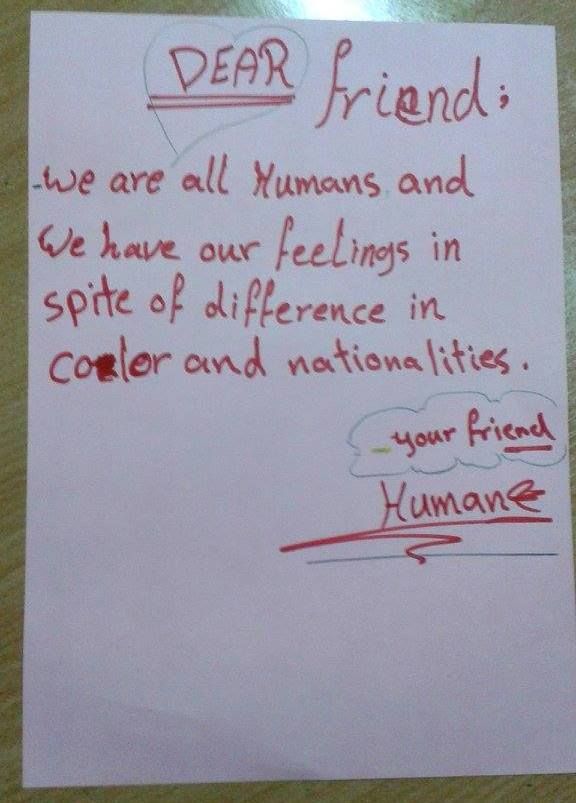 DEAR friend;
-we are all Humans and
We have our feelings in
spite of difference in
color and nationalities.
- your friend
Humane